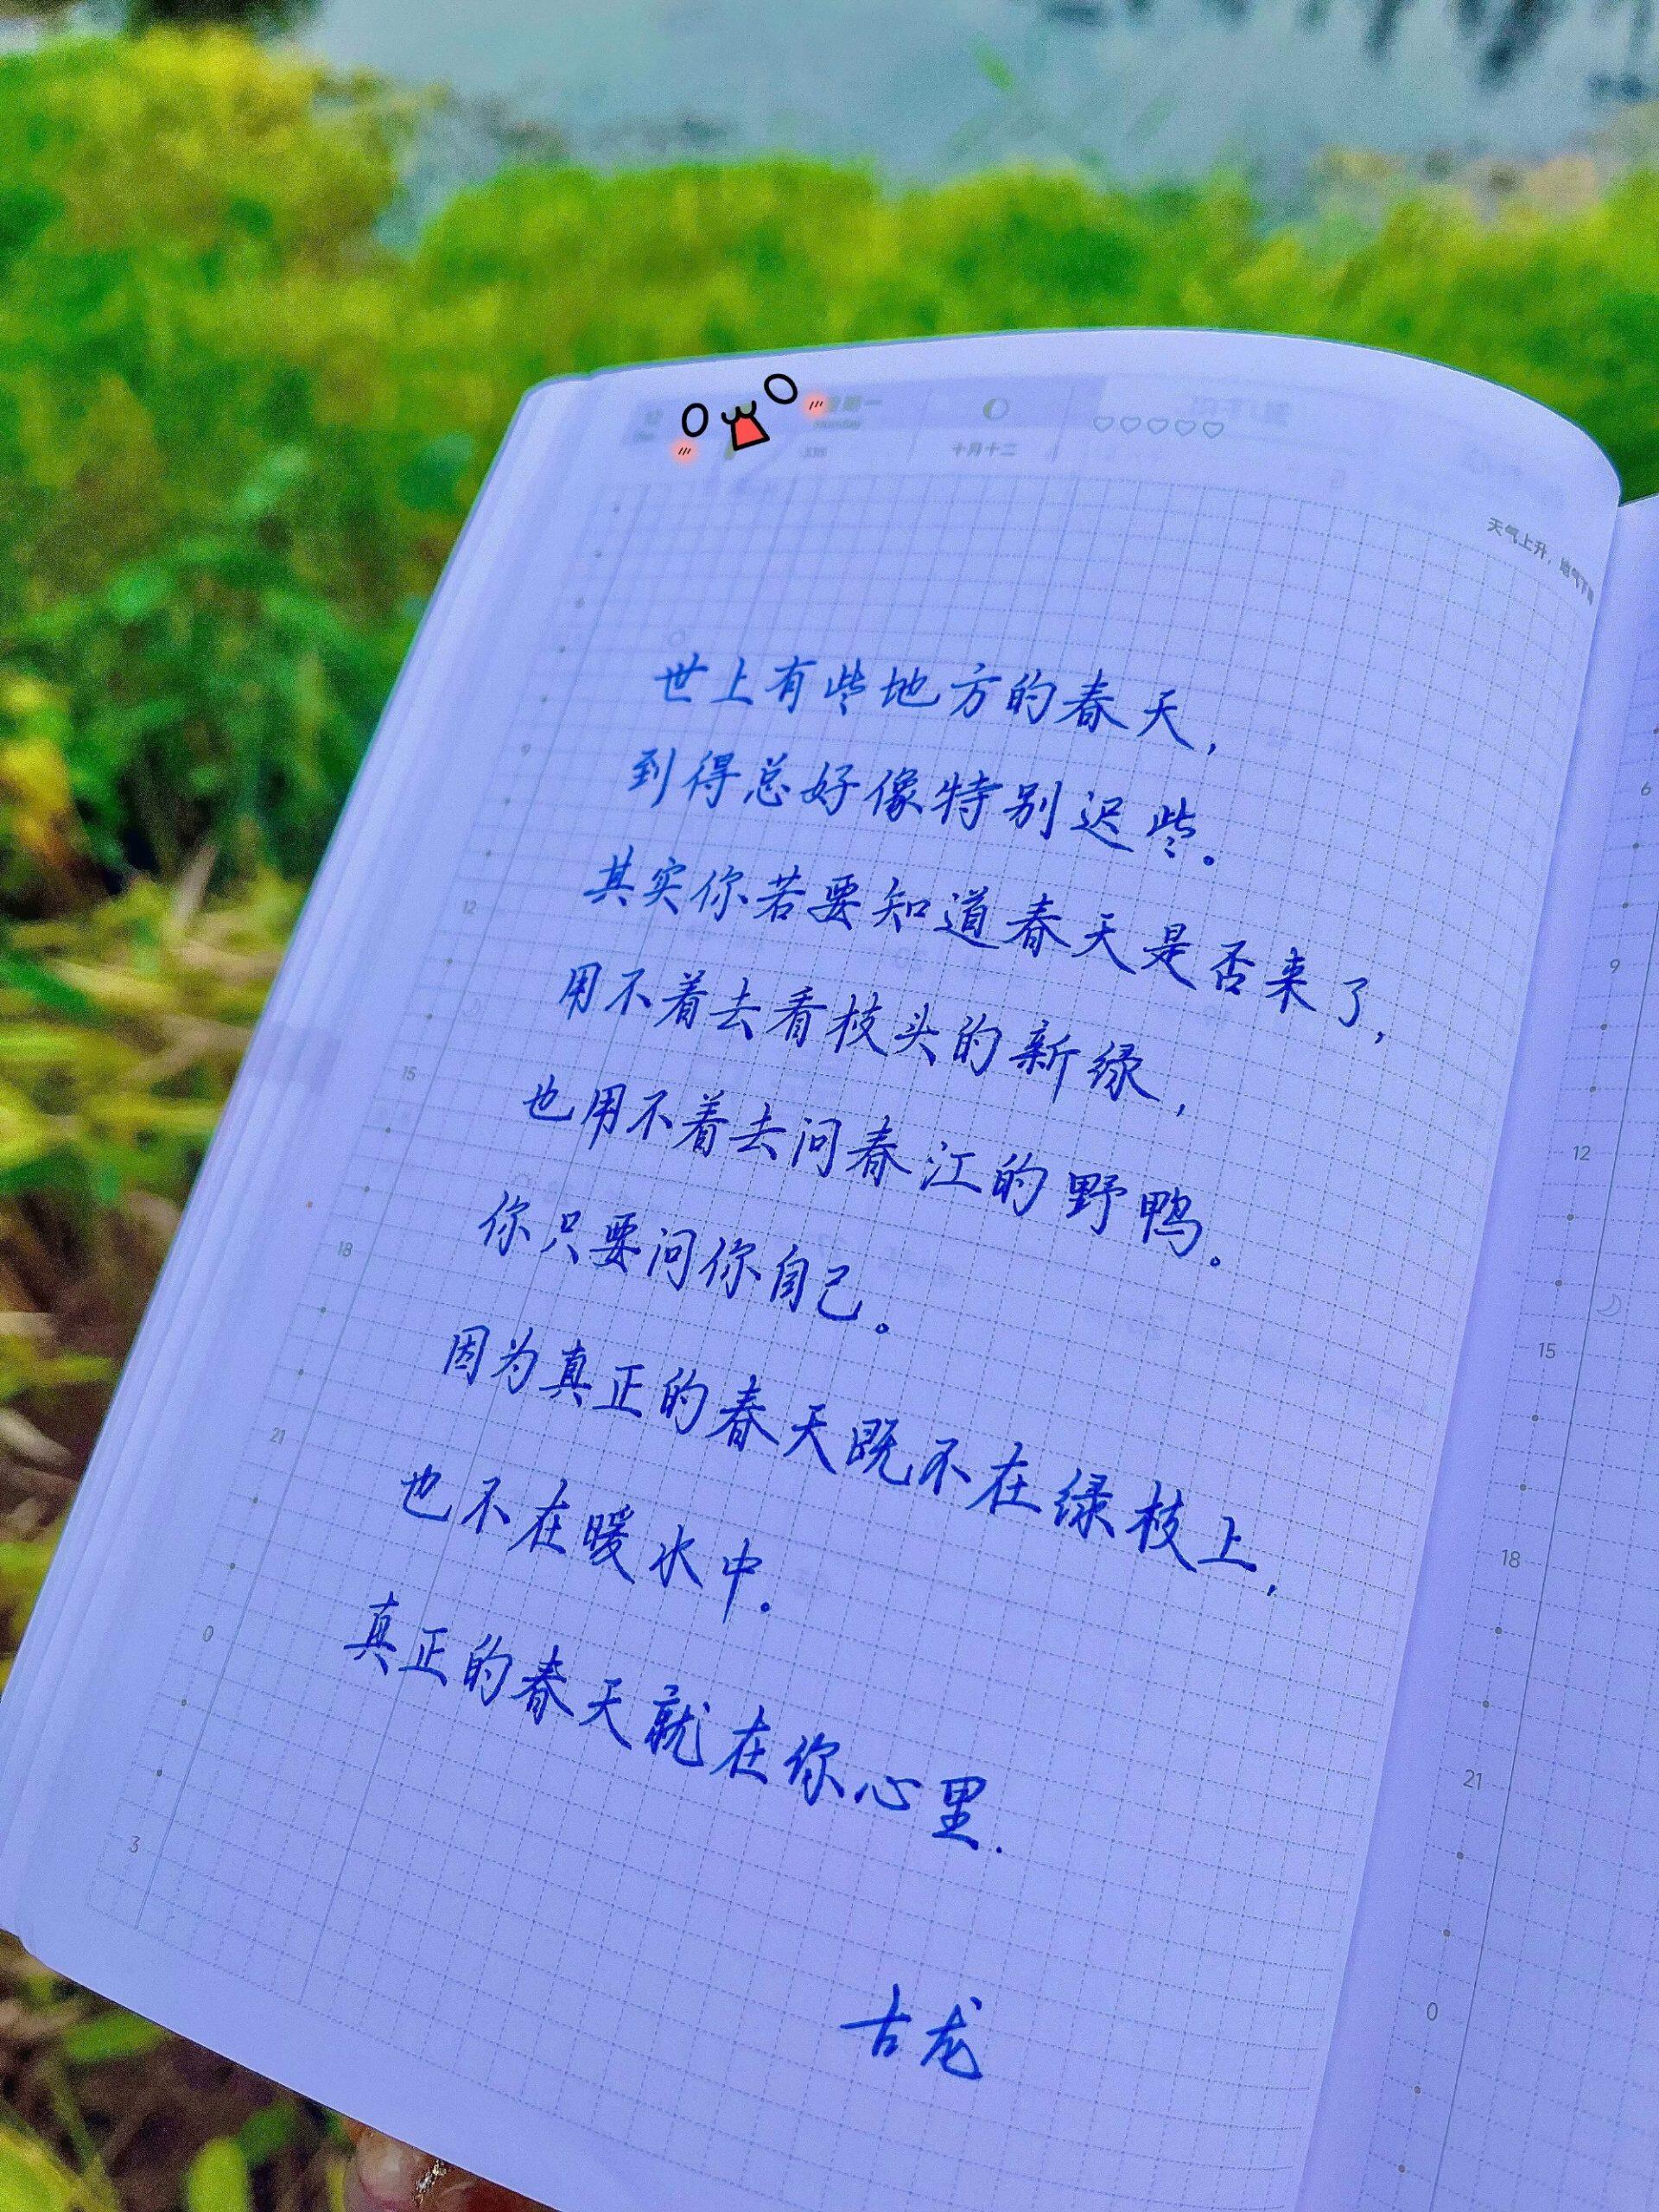 十月十二
天气上升，
世上有些地方的春天，
到得总好像特别迟些。
其实你若要知道春天是否来了，
用不着去看枝头的新绿，
也用不着去问春江的野鸭。
你只要问你自己。
因为真正的春天既不在绿枝上，
也不在暖水中。
真正的春天就在你心里.
古龙
9
12
15
18
21
0
3
6
9
12
15
18
21
0